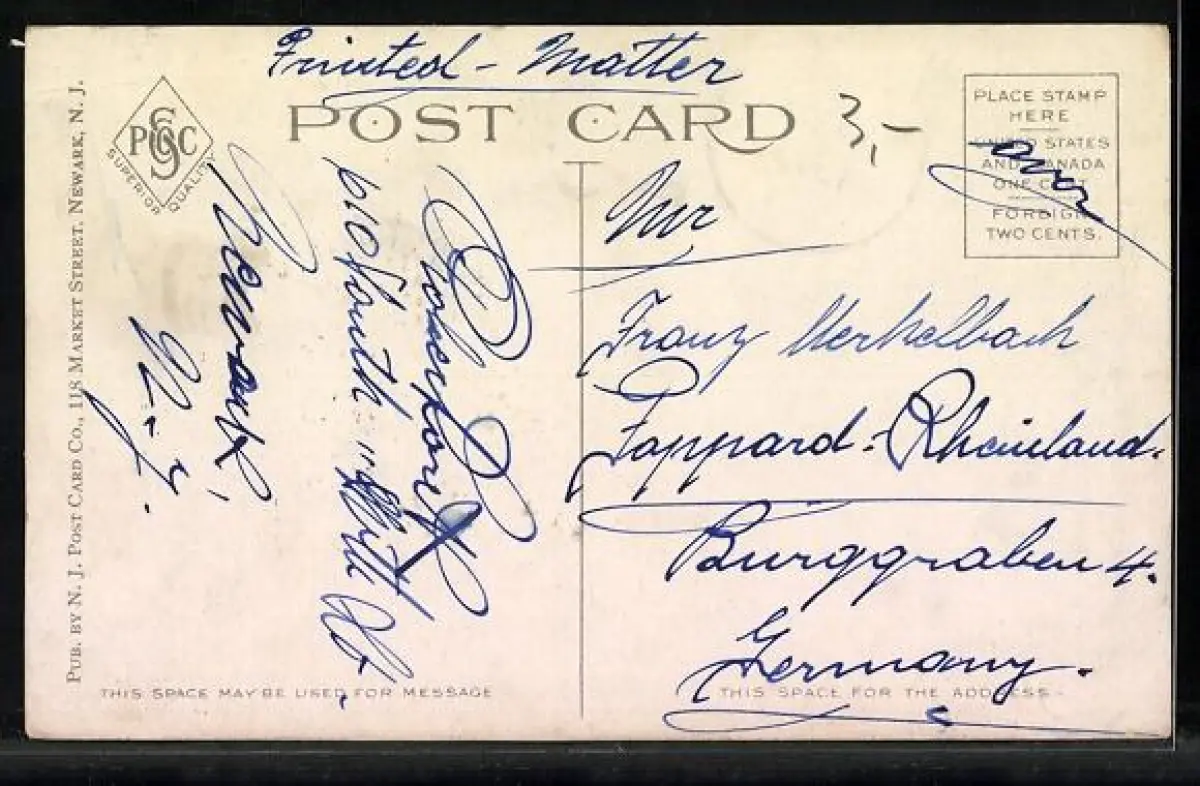 Printed - Matter
POST CARD
3,-
PLACE STAMP
HERE
UNITED STATES
AND CANADA
ONE CENT
FOREIGN
TWO CENTS.
over
SUPERIOR QUALITY
PUB. BY N. J. POST CARD CO., 118 MARKET STREET, NEWARK, N. J.
Mr
Franz Merkelbach
Poppard - Rheinland.
Burggraben 4.
Germany.
910 South
Newark,
N. J.
THIS SPACE MAY BE USED FOR MESSAGE
THIS SPACE FOR THE ADDRESS